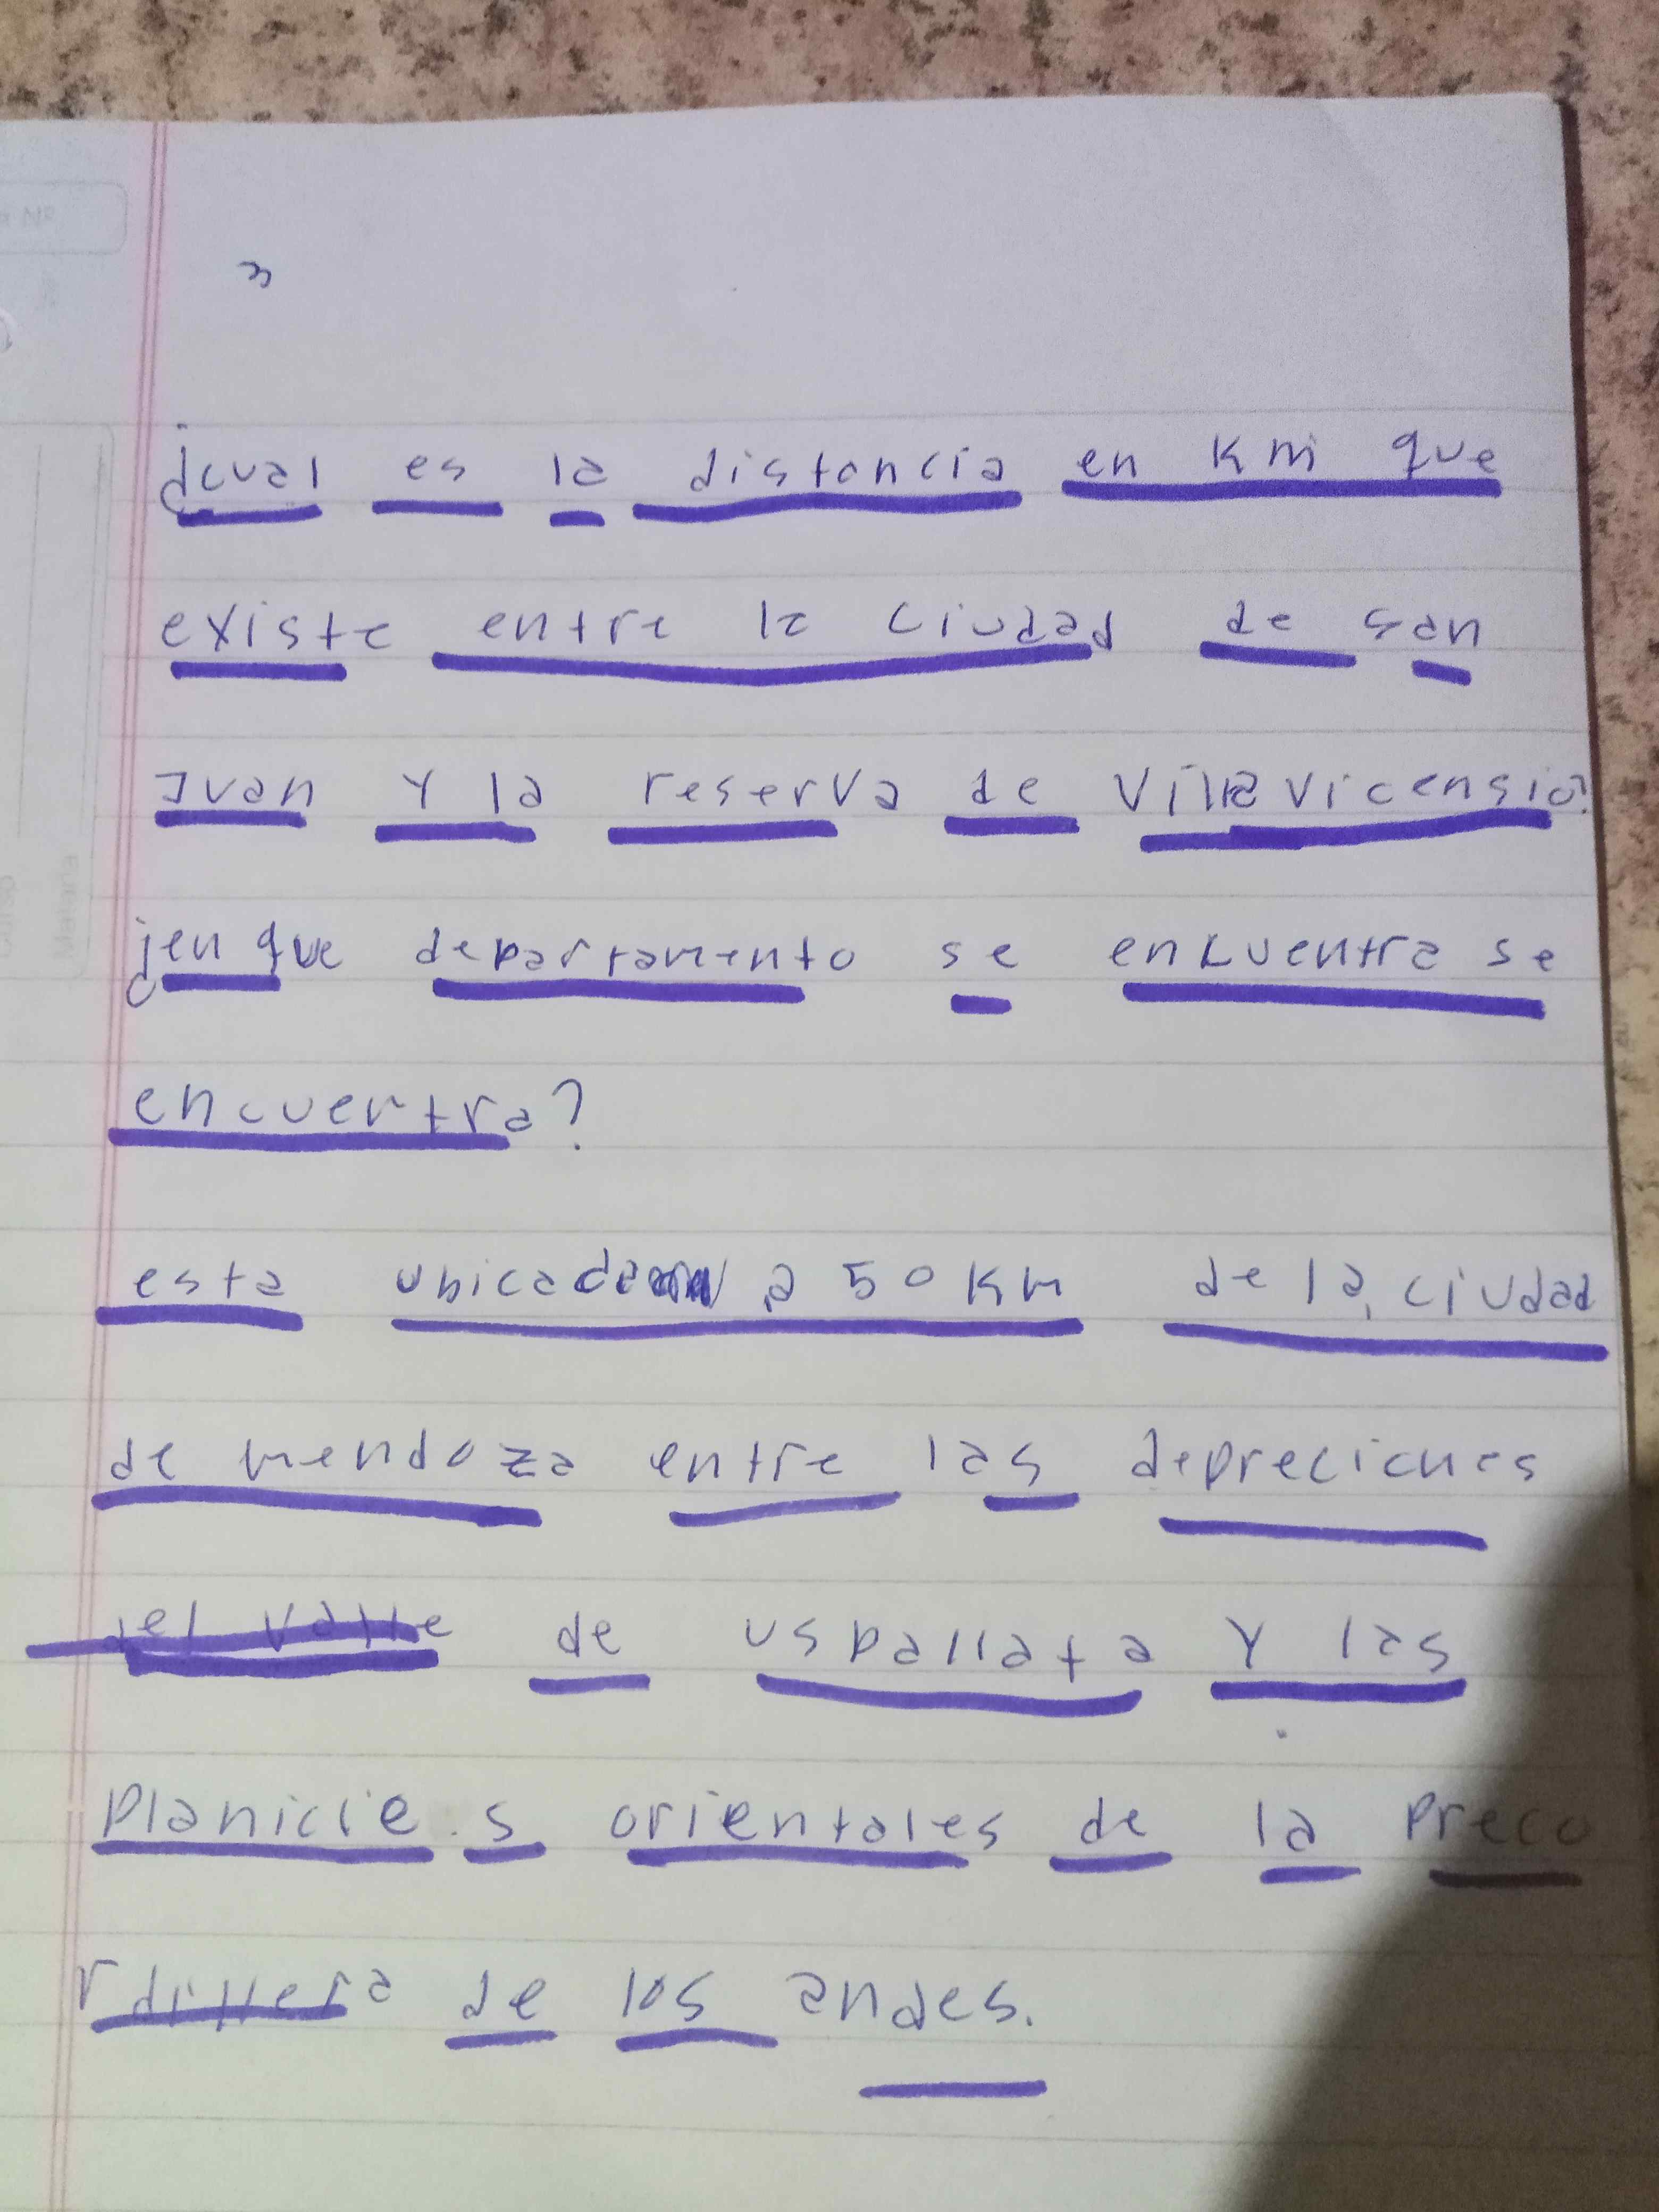 3
¿cual es la distancia en Km que
existe entre la ciudad de san
Juan y la reserva de Villavicensio?
¿en que departamento se encuentra se
encuentra?
esta ubicada a 50 Km de la ciudad
de mendoza entre las depreciones
del valle de uspallata y las
planicies orientales de la preco
rdillera de los andes.